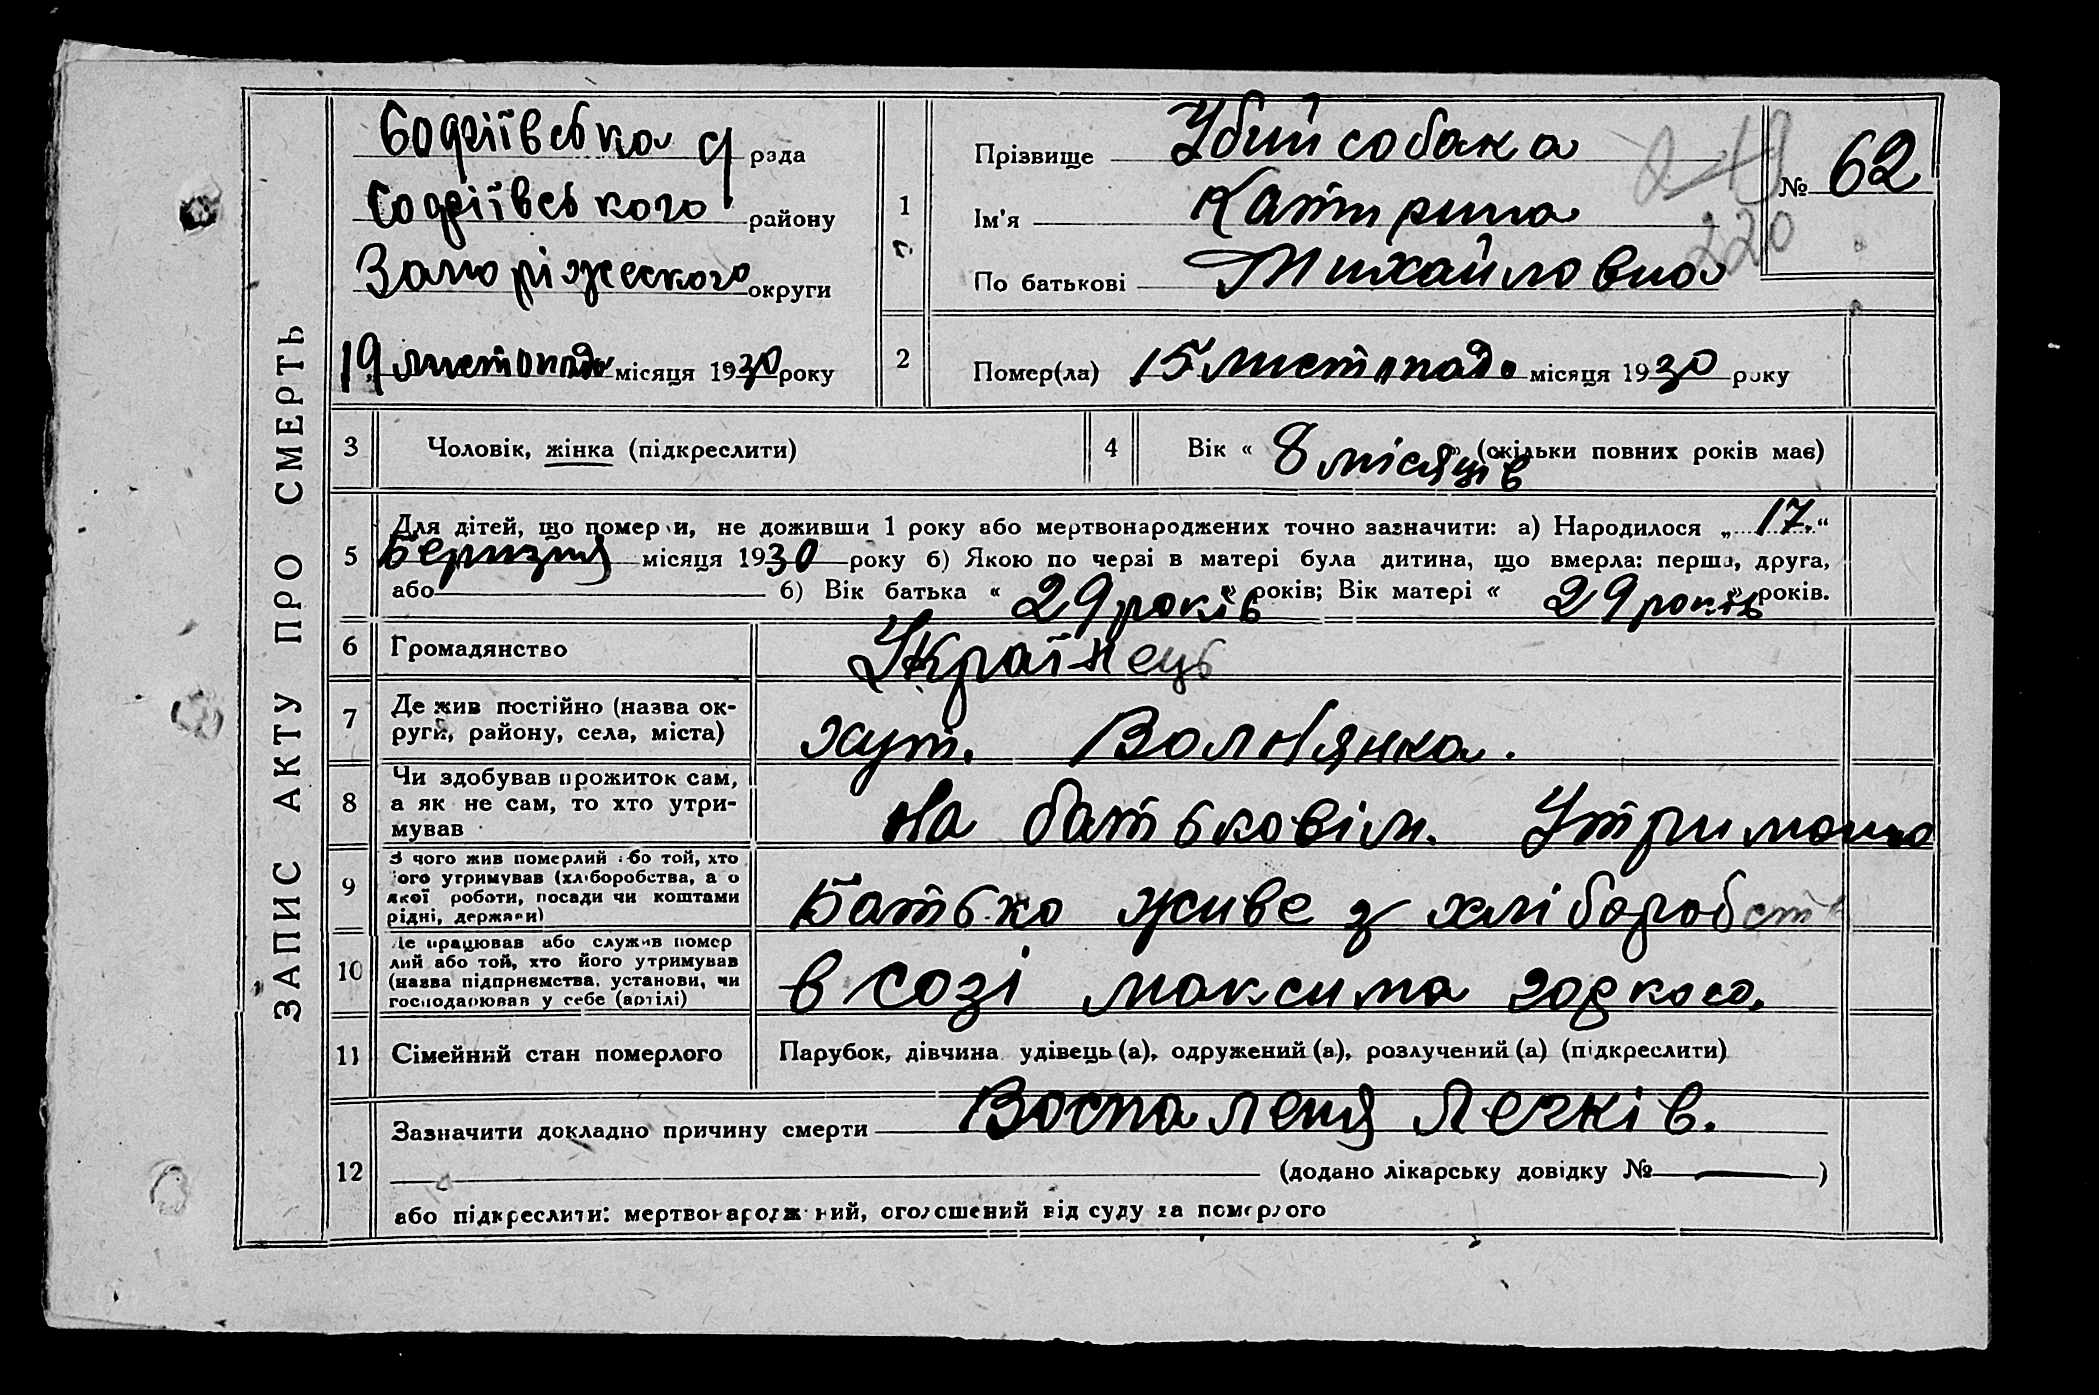 ЗАПИС АКТУ ПРО СМЕРТЬ
Содфіївська рада
Софіївського району
Запоріжеского округи
19 листопада місяця 1930 року
1
Прізвище Убийсобака
Ім'я Катрина
По батькові Михайловна
№ 62
220
2 Помер(ла) 15 листопада місяця 1930 року
3 Чоловік, жінка (підкреслити)
4 Вік « 8 місяців » (скільки повних років має)
5 Для дітей, що померли, не доживши 1 року або мертвонароджених точно зазначити: а) Народилося „ 17. “
Беризня місяця 1930 року б) Якою по черзі в матері була дитина, що вмерла: перша, друга,
або б) Вік батька « 29 років » років; Вік матері « 29 років » років.
6 Громадянство Українець
7 Де жив постійно (назва ок-
руги, району, села, міста)
хут. Волнянка.
8 Чи здобував прожиток сам,
а як не сам, то хто утри-
мував
На батьковім. Утримано
9 З чого жив померлий або той, хто
його утримував (хліборобства, а о
якої роботи, посади чи коштами
рідні, держави)
Батько живе з хліборобств
10 Де працював або служив помер
лий або той, хто його утримував
(назва підприємства, установи, чи
господарював у себе (артілі)
в созі максима горкого.
11 Сімейний стан померлого Парубок, дівчина удівець (а), одружений (а), розлучений (а) (підкреслити)
12 Зазначити докладно причину смерти Воспаленя Легків.
(додано лікарську довідку № — )
або підкреслити: мертвонароджений, оголошений від суду за померлого